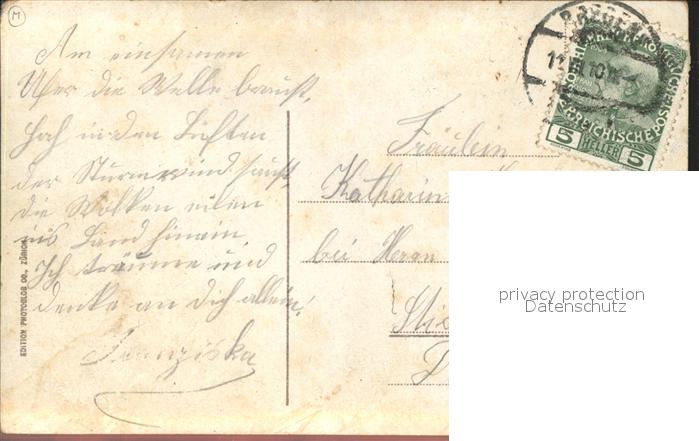 M
Am einsamen
Ufer die Welle braust,
hoch in den Lüften
der Sturmwind saust,
die Wolken eilen
ins Land hinein
Ich träume und
denke an Dich allein!
Franziska
EDITION PHOTOGLOB CO., ZÜRICH
BREGENZ
5 HELLER 5
Fräulein
Katharina
bei Herrn
privacy protection
Datenschutz